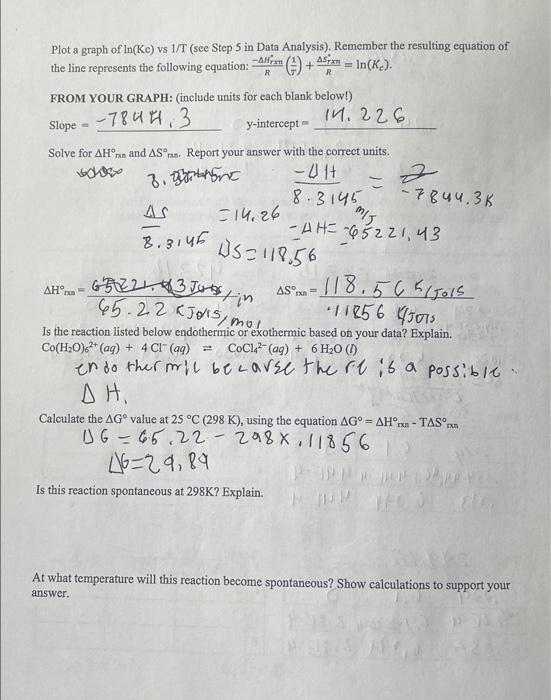 Plot a graph of ln(Kc) vs 1/T (see Step 5 in Data Analysis). Remember the resulting equation of
the line represents the following equation: -ΔH°rxn/R (1/T) + ΔS°rxn/R = ln(Kc).
FROM YOUR GRAPH: (include units for each blank below!)
Slope = -7844.3 y-intercept = 14.226
Solve for ΔH°rxn and ΔS°rxn. Report your answer with the correct units.
-ΔH/8.3145 = -7844.3K
ΔS/8.3145 = 14.26
-ΔH = -65221.43
ΔS = 118.56
ΔH°rxn = 65221.43 ΔS°rxn = 118.56
65.22 KJols/mol .11856
Is the reaction listed below endothermic or exothermic based on your data? Explain.
Co(H₂O)₆²⁺ (aq) + 4 Cl⁻ (aq) = CoCl₄²⁻ (aq) + 6 H₂O (l)
endothermic because the re is a possible
ΔH.
Calculate the ΔG° value at 25 °C (298 K), using the equation ΔG° = ΔH°rxn - TΔS°rxn
ΔG = 65.22 - 298 x .11856
ΔG = 29.89
Is this reaction spontaneous at 298K? Explain.
At what temperature will this reaction become spontaneous? Show calculations to support your
answer.